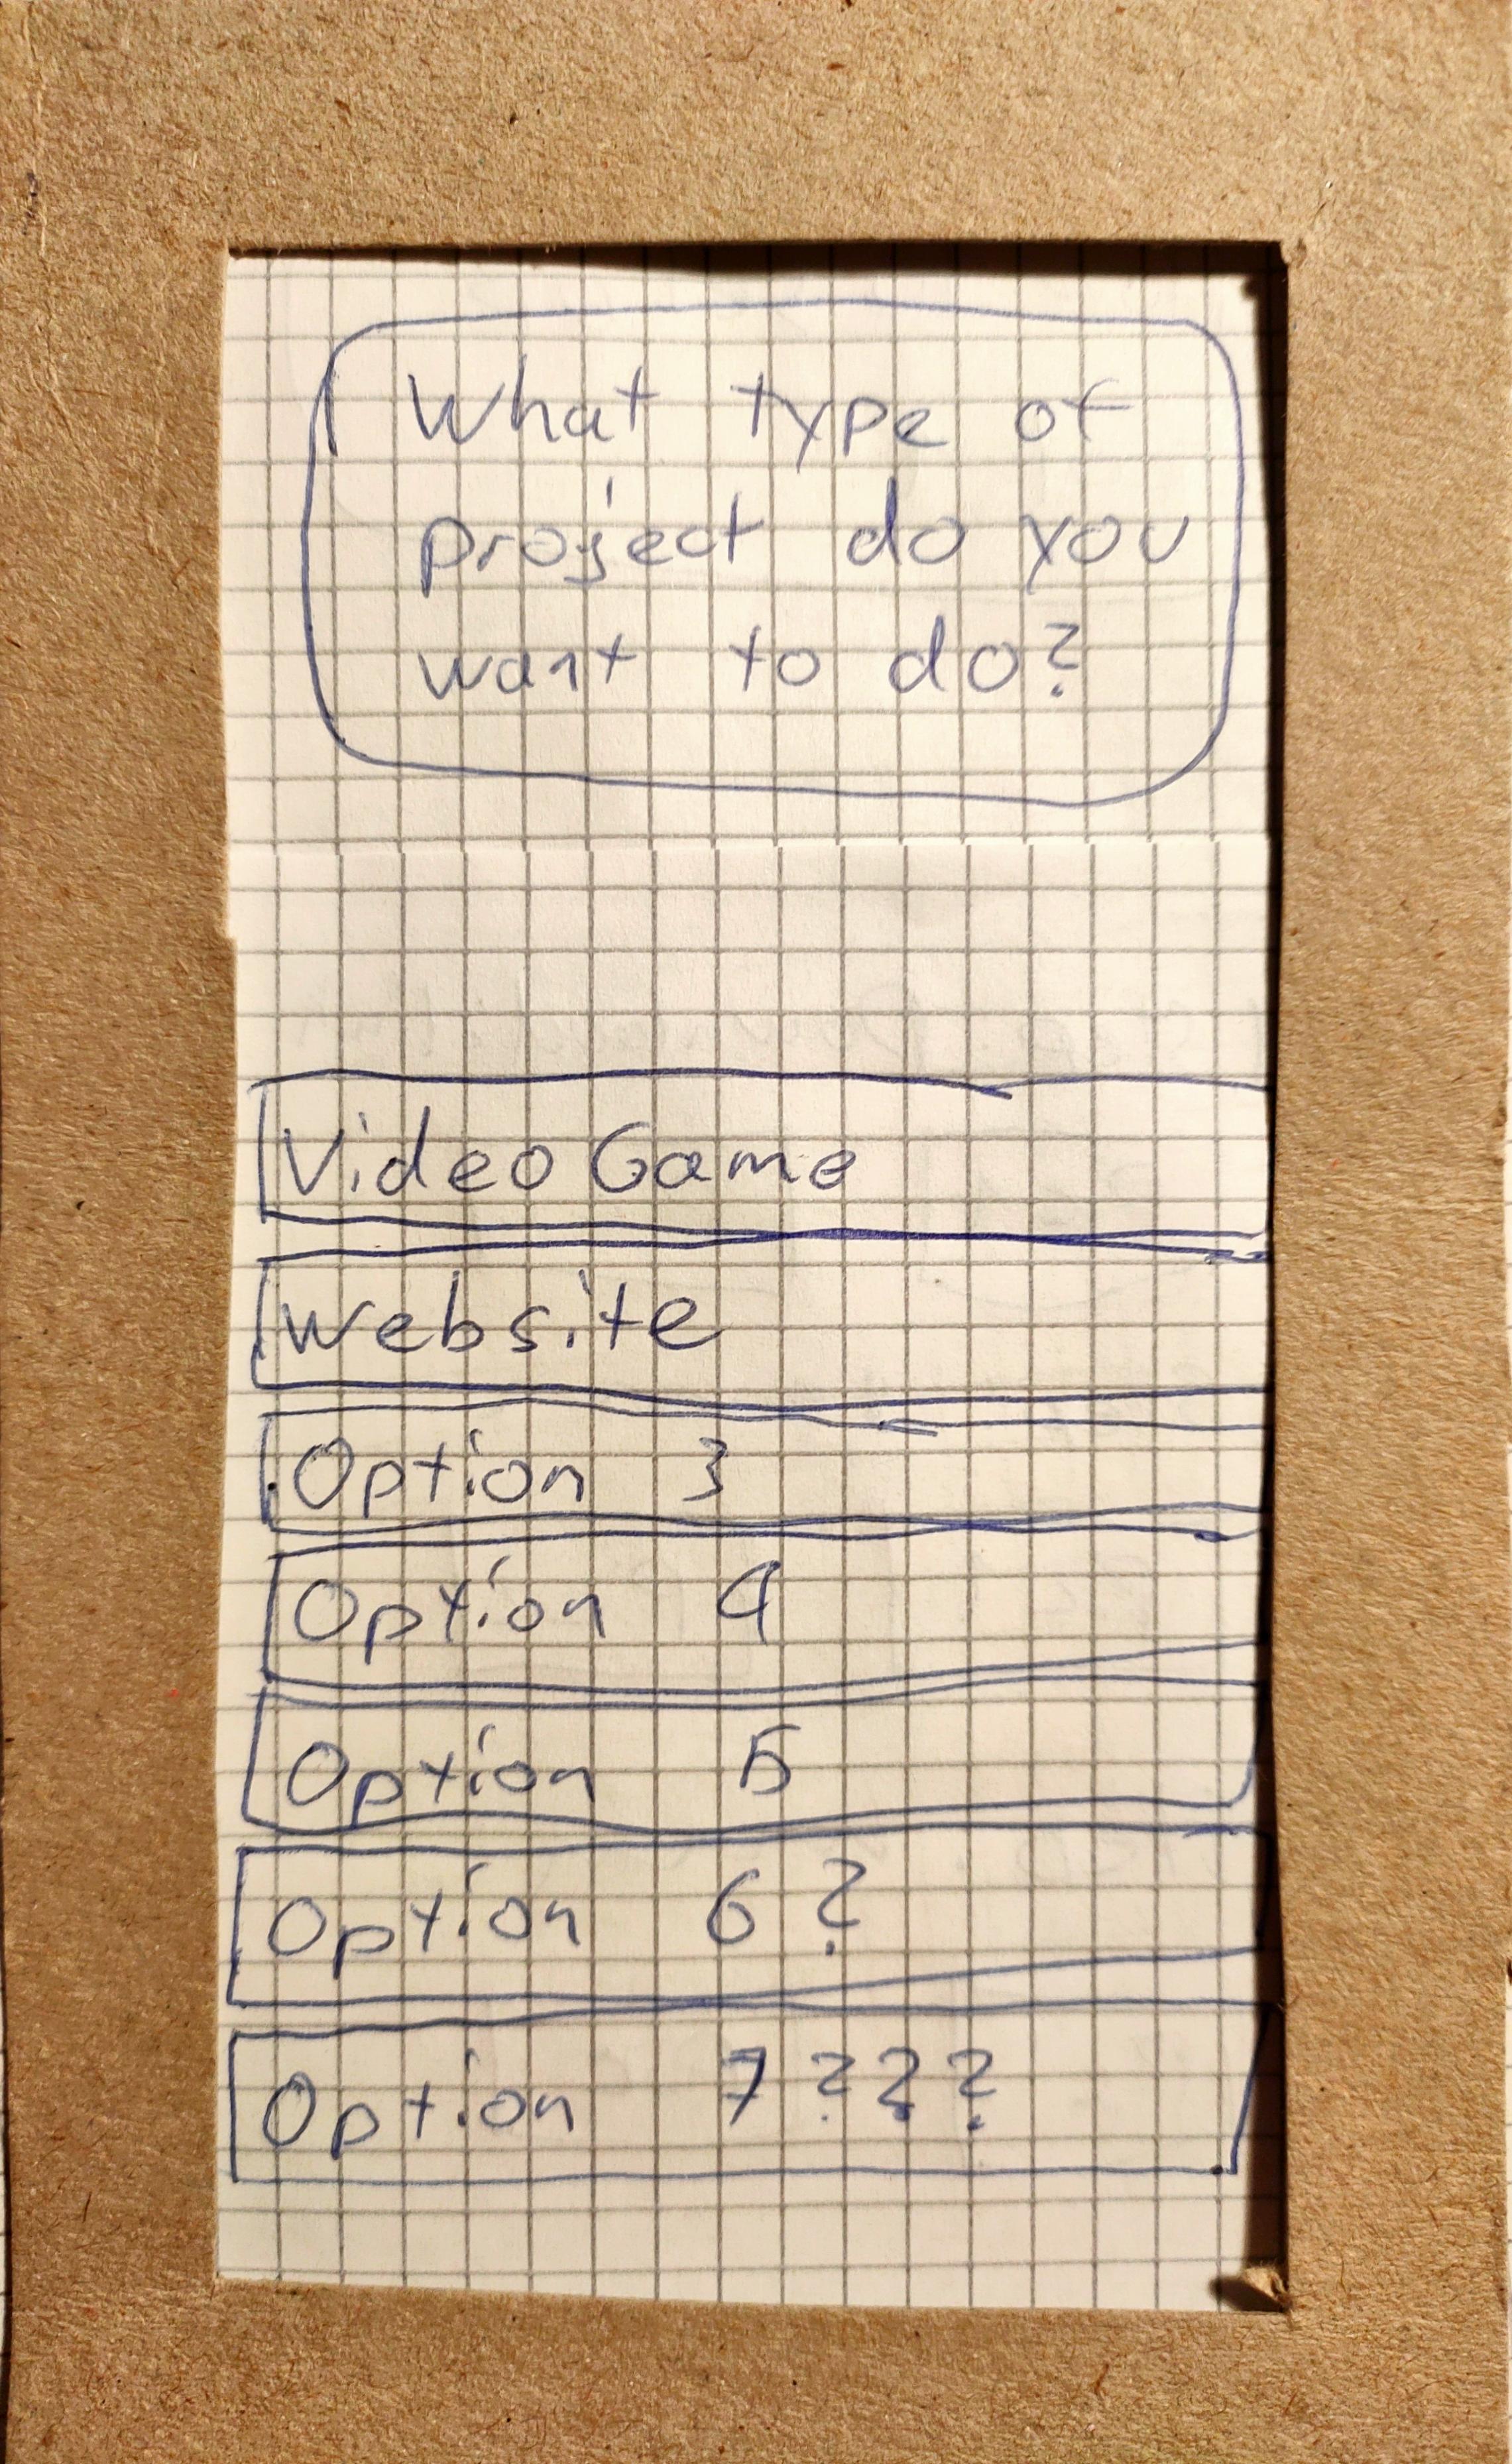 What type of
project do you
want to do?
Video Game
Website
Option 3
Option 4
Option 5
Option 6?
Option 7???